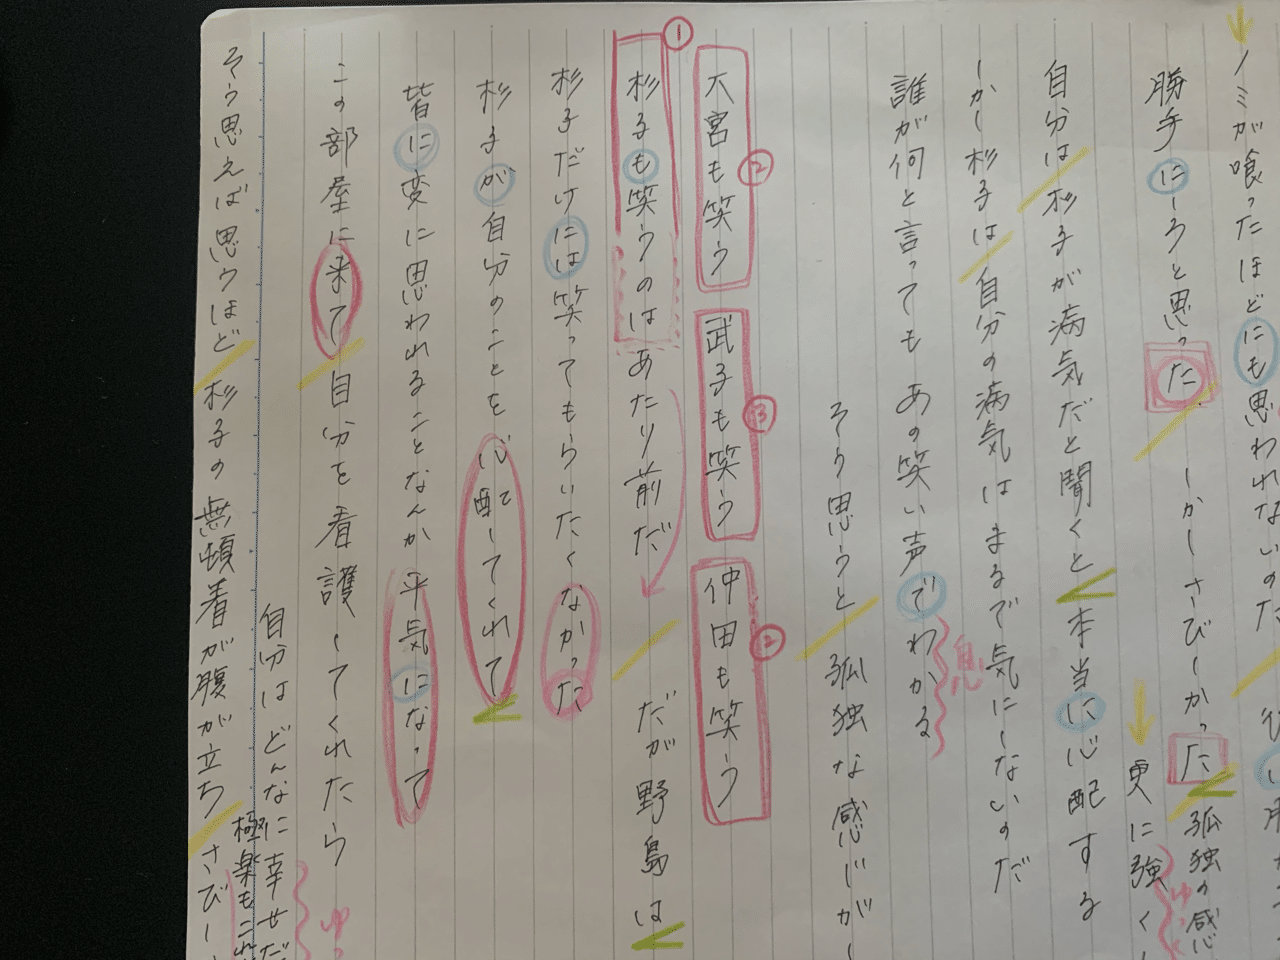 ノミが喰ったほどにも思われないのだ
勝手にしろと思った しかしさびしかった 孤独の感
更に強く
自分は杉子が病気だと聞くと本当に心配する
しかし杉子は自分の病気はまるで気にしないのだ
誰が何と言ってもあの笑い声でわかる
息
そう思うと孤独な感じがし
大宮も笑う 武子も笑う 仲田も笑う
② ③ ②
①
杉子も笑うのはあたり前だ だが野島は
杉子だけには笑ってもらいたくなかった
杉子が自分のことを心配してくれて
皆に変に思われることなんか平気になって
この部屋に来て自分を看護してくれたら
ゆっ
自分はどんなに幸せだ
極楽もこれ
そう思えば思うほど杉子の無頓着が腹が立ち さびし